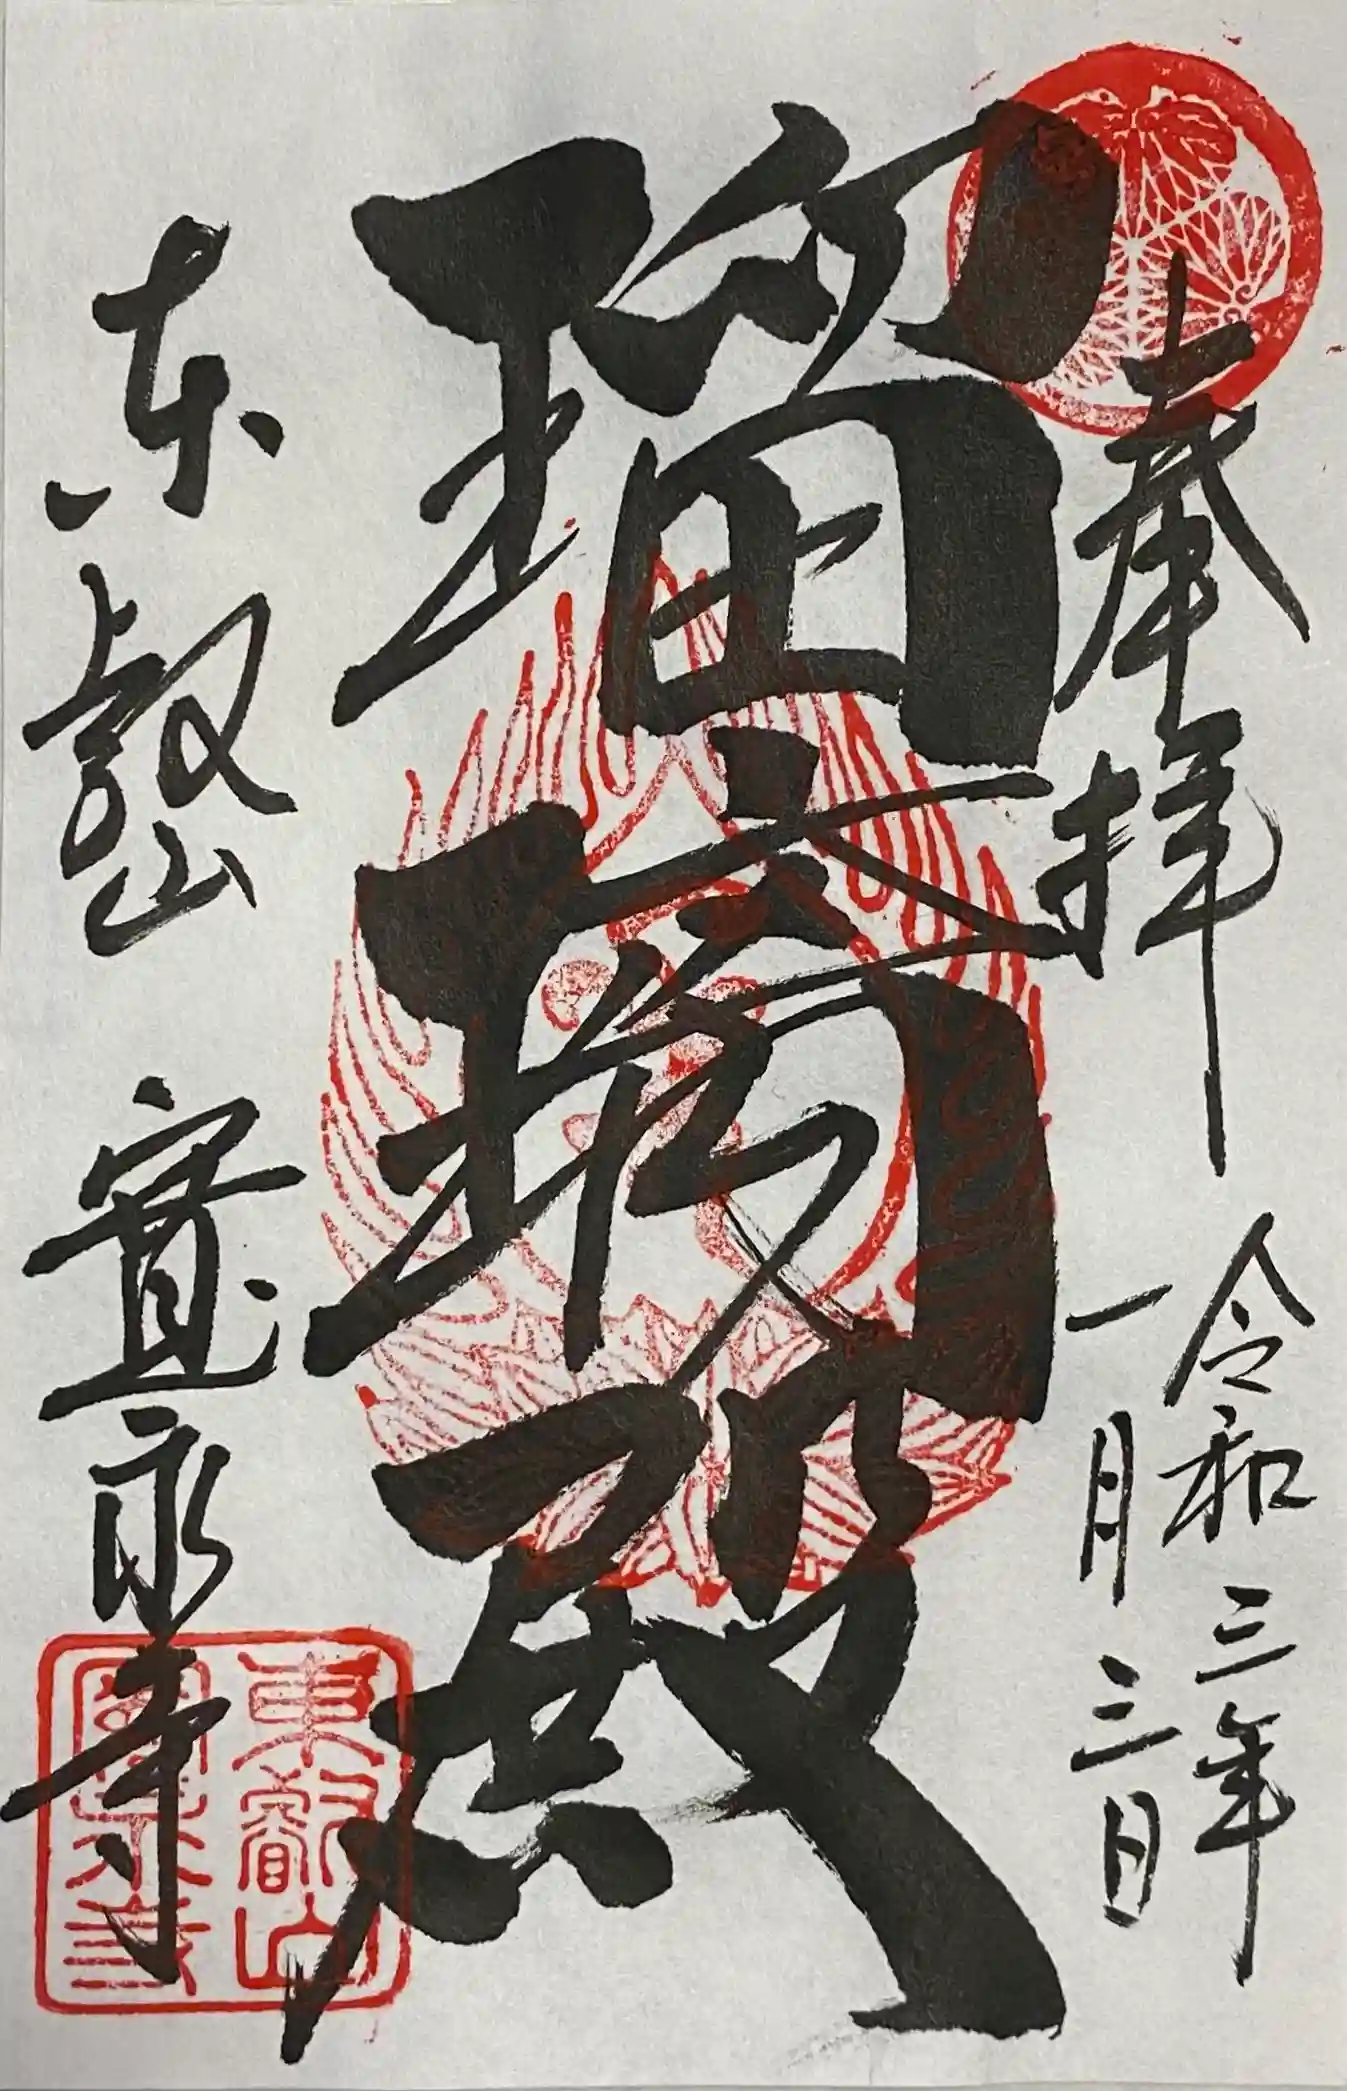 奉拝
令和三年
一月三日
瑠璃殿
東叡山 寛永寺
東叡山
寛永寺